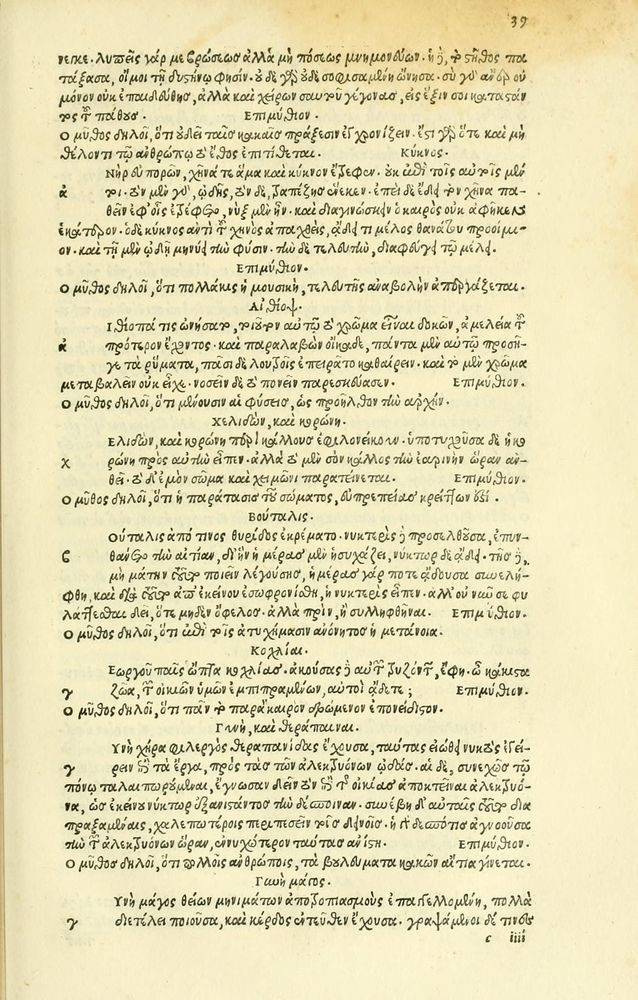 39
νεγκε. λυπεῖς γάρ με βρώσεως ἀλλὰ μὴ πόσεως μνημονεύων. ἡ δὲ, τὸ στῆθος πα
τάξασα, οἴμοι τῇ δυστήνῳ φησίν. οὐδὲ γὰρ οὐδὲ σοφισαμένη ὤνησα. σὺ γὰρ ἄνερ οὐ
μόνον οὐκ ἐπαιδεύθης, ἀλλὰ καὶ χείρων σαυτοῦ γέγονας, εἰς ἕξιν σοι καταστάν
τος τοῦ πάθους. Ἐπιμύθιον.
Ο μῦθος δηλοῖ, ὅτι οὐ δεῖ ταῖς κακαῖς πράξεσιν ἐγχρονίζειν. ἔστι γὰρ ὅτε καὶ μὴ
θέλοντι τῷ ἀνθρώπῳ τὸ ἔθος ἐπιτίθεται. Κύκνος.
Νὴρ εὐπορῶν, χῆνά τε ἅμα καὶ κύκνον ἔτρεφεν. οὐκ ἐπὶ τοῖς αὐτοῖς μέν
α τοι. τὸν μὲν γὰρ, ᾠδῆς, τὸν δὲ, τραπέζης ἕνεκεν. ἐπεὶ δὲ ἔδει τὸν χῆνα πα
θεῖν ἐφ' οἷς ἐτρέφετο, νὺξ μὲν ἦν. καὶ διαγινώσκειν ὁ καιρὸς οὐκ ἀφῆκεν
ἑκάτερον. ὁ δὲ κύκνος ἀντὶ τοῦ χηνὸς ἀπαχθεὶς, ᾄδει τι μέλος θανάτου προοίμι
ον. καὶ τῇ μὲν ᾠδῇ μηνύει τὴν φύσιν. τὴν δὲ τελευτὴν, διαφεύγει τῷ μέλει.
Ἐπιμύθιον.
Ο μῦθος δηλοῖ, ὅτι πολλάκις ἡ μουσικὴ, τελευτῆς ἀναβολὴν ἀπεργάζεται.
Αἰθίοψ.
Ιθίοπά τις ὠνήσατο, τοιοῦτον αὐτῷ τὸ χρῶμα εἶναι δοκῶν, ἀμελείᾳ τοῦ
α πρότερον ἔχοντος. καὶ παραλαβὼν οἴκαδε, πάντα μὲν αὐτῷ προσῆ
γε τὰ ῥύμματα, πᾶσι δὲ λουτροῖς ἐπειρᾶτο καθαίρειν. καὶ τὸ μὲν χρῶμα
μεταβαλεῖν οὐκ εἶχε. νοσεῖν δὲ τὸ πονεῖν παρεσκεύασεν. Ἐπιμύθιον.
Ο μῦθος δηλοῖ, ὅτι μένουσιν αἱ φύσεις, ὡς προῆλθον τὴν ἀρχήν.
Χελιδὼν, καὶ κορώνη.
Ελιδὼν, καὶ κορώνη περὶ κάλλους ἐφιλονείκουν. ὑποτυχοῦσα δὲ ἡ κο
χ ρώνη πρὸς αὐτὴν εἶπεν. ἀλλὰ τὸ μὲν σὸν κάλλος τὴν ἐαρινὴν ὥραν ἀν
θεῖ. τὸ δὲ ἐμὸν σῶμα καὶ χειμῶνι παρατείνεται. Ἐπιμύθιον.
Ο μῦθος δηλοῖ, ὅτι ἡ παράτασις τοῦ σώματος, εὐπρεπείας κρείττων ἐστί.
Βούταλις.
Ούταλις ἀπό τινος θυρίδος ἐκρέματο. νυκτερὶς δὲ προσελθοῦσα, ἐπυν
β θάνετο τὴν αἰτίαν, δι' ἣν ἡμέρας μὲν ἡσυχάζει, νύκτωρ δὲ ᾄδει. τῆς δὲ,
μὴ μάτην τοῦτο ποιεῖν λεγούσης, ἡμέρας γάρ ποτε ᾄδουσα συνελή
φθη, καὶ διὰ τοῦτο ἀπ' ἐκείνου ἐσωφρονίσθη, ἡ νυκτερὶς εἶπεν. ἀλλ' οὐ νῦν σε φυ
λάττεσθαι δεῖ, ὅτε μηδὲν ὄφελος. ἀλλὰ πρὶν, ἢ συλληφθῆναι. Ἐπιμύθιον.
Ο μῦθος δηλοῖ, ὅτι ἐπὶ τοῖς ἀτυχήμασιν ἀνόνητος ἡ μετάνοια.
Κοχλίαι.
Εωργοῦ παῖς ὤπτα κοχλίας. ἀκούσας δὲ αὐτῶν τρυζόντων, ἔφη. ὦ κάκιστα
γ ζῶα, τῶν οἰκιῶν ὑμῶν ἐμπιπραμένων, αὐτοὶ ᾄδετε; Ἐπιμύθιον.
Ο μῦθος δηλοῖ, ὅτι πᾶν τὸ παρὰ καιρὸν δρώμενον ἐπονείδιστον.
Γυνὴ, καὶ θεράπαιναι.
Υνὴ χήρα φιλεργὸς θεραπαινίδας ἔχουσα, ταύτας εἰώθει νυκτὸς ἐγεί
γ ρειν ἐπὶ τὰ ἔργα, πρὸς τὰς τῶν ἀλεκτρυόνων ᾠδάς. αἱ δὲ, συνεχῶς τῷ
πόνῳ ταλαιπωρούμεναι, ἔγνωσαν δεῖν τὸν ἐπὶ τῆς οἰκίας ἀποκτεῖναι ἀλεκτρυό
να, ὡς ἐκείνου νύκτωρ ἐξανιστάντος τὴν δέσποιναν. συνέβη δ' αὐταῖς τοῦτο δια
πραξαμέναις, χαλεπωτέροις περιπεσεῖν τοῖς δεινοῖς. ἡ γὰρ δεσπότις ἀγνοοῦσα
τὴν τῶν ἀλεκτρυόνων ὥραν, ἐννυχώτερον ταύτας ἀνίστη. Ἐπιμύθιον.
Ο μῦθος δηλοῖ, ὅτι πολλοῖς ἀνθρώποις, τὰ βουλεύματα κακῶν αἴτια γίνεται.
Γυνὴ μάγος.
Υνὴ μάγος θείων μηνιμάτων ἀποτροπιασμοὺς ἐπαγγελλομένη, πολλὰ
γ διετέλει ποιοῦσα, καὶ κέρδος ἐντεῦθεν ἔχουσα. γραψάμενοι δέ τινες
c iiii